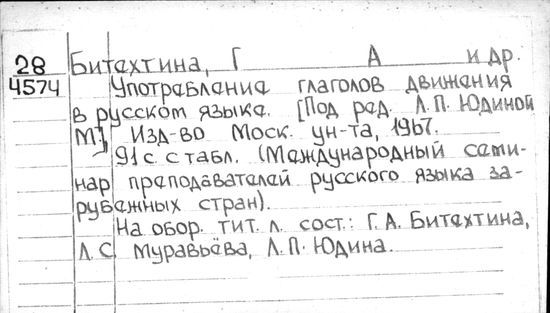 28 Битехтина, Г А и др.
4574 Употребление глаголов движения
в русском языке. [Под ред. Л.П. Юдиной
М.], Изд-во Моск. ун-та, 1967.
91 с с табл. (Международный семи-
нар преподавателей русского языка за-
рубежных стран).
На обор. тит. л. сост.: Г.А. Битехтина,
Л.С. Муравьёва, Л.П. Юдина.